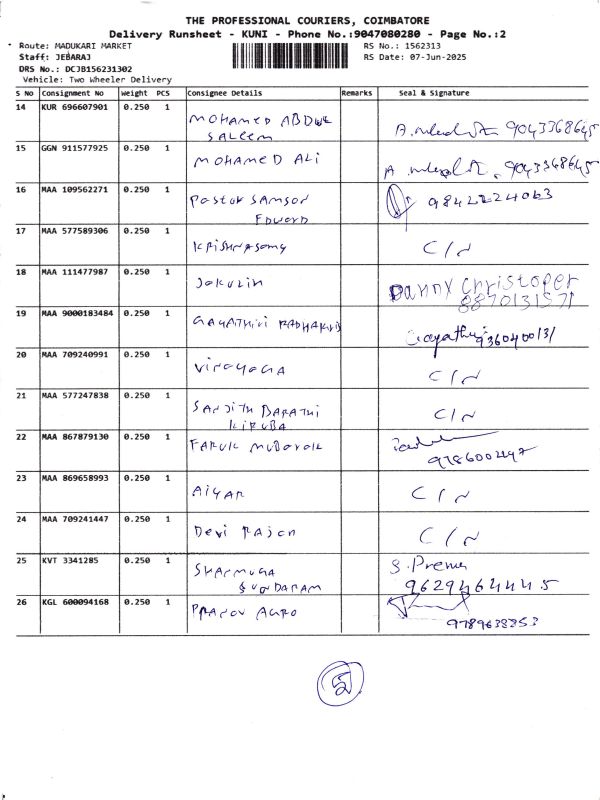 THE PROFESSIONAL COURIERS, COIMBATORE
Delivery Runsheet - KUNI - Phone No.:9047080280 - Page No.:2
Route: MADUKARI MARKET RS No.: 1562313
Staff: JEBARAJ RS Date: 07-Jun-2025
DRS No.: DCJB156231302
Vehicle: Two Wheeler Delivery
S No Consignment No Weight PCS Consignee Details Remarks Seal & Signature
14 KUR 696607901 0.250 1 MOHAMED ABDUL
SALEEM 9043368645
15 GGN 911577925 0.250 1 MOHAMED ALI 9043368645
16 MAA 109562271 0.250 1 Pastor SAMSON 9842224063
EDWORD
17 MAA 577589306 0.250 1 KRISHNASAMY C/N
18 MAA 111477987 0.250 1 Jokulin Danny Christoper
8870131571
19 MAA 9000183484 0.250 1 GAYATHIRI Gayathri 9360400131
20 MAA 709240991 0.250 1 VINAYAGA C/N
21 MAA 577247838 0.250 1 SANJITH BARATHI C/N
KIRUBA
22 MAA 867879130 0.250 1 FARUK MUBARAK
23 MAA 869658993 0.250 1 AIYAR C/N
24 MAA 709241447 0.250 1 Devi RAJAN C/N
25 KVT 3341285 0.250 1 SHANMUGA S. Prema
SUNDARAM 9629464445
26 KGL 600094168 0.250 1 PRANOV AGRO
9789638853